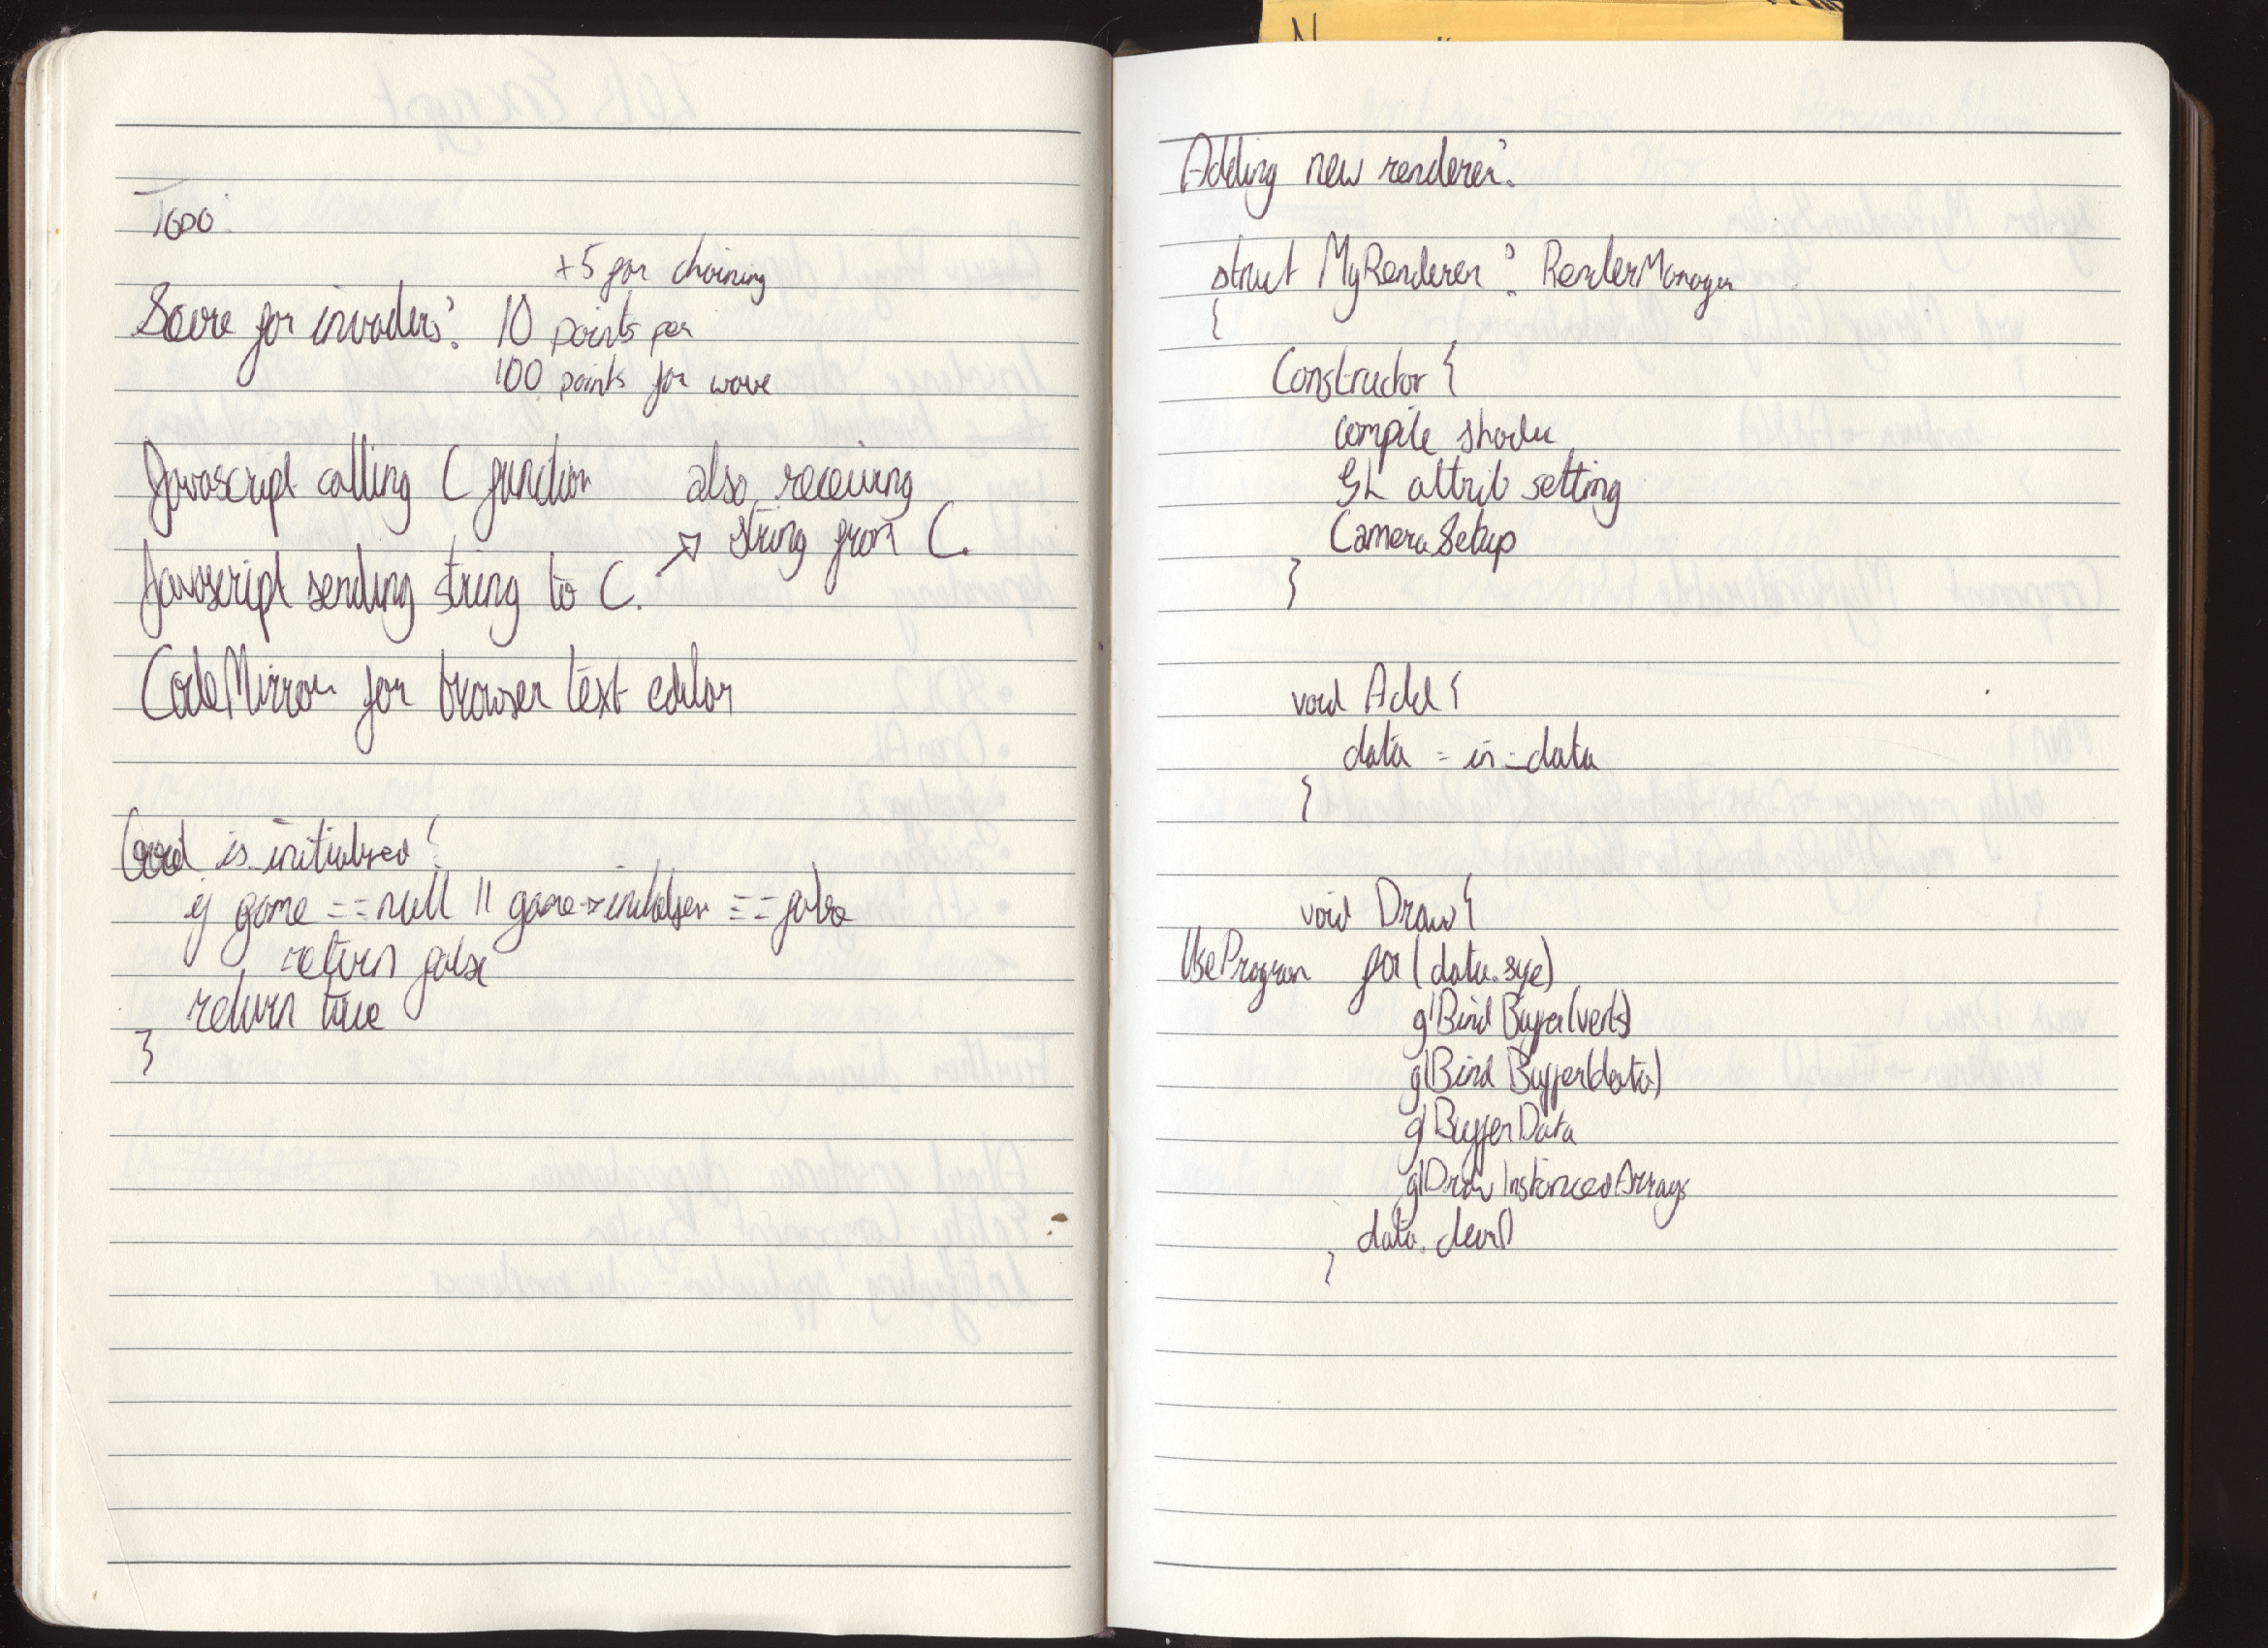 TODO:
+5 for chaining
Score for invaders: 10 points per
100 points for wave
Javascript calling C function also receiving
string from C.
Javascript sending string to C. →
CodeMirror for browser text editor
is_initialised {
if game == null || game->initialised == false
return false
return true
}
Adding new renderer:
struct MyRenderer : RenderManager
{
Constructor {
compile shader
GL attrib setting
Camera Setup
}
void Add {
data = in_data
}
void Draw {
UseProgram for (data.size)
glBindBuffer(verts)
glBindBuffer(data)
glBufferData
glDrawInstancedArrays
data.clear()
}